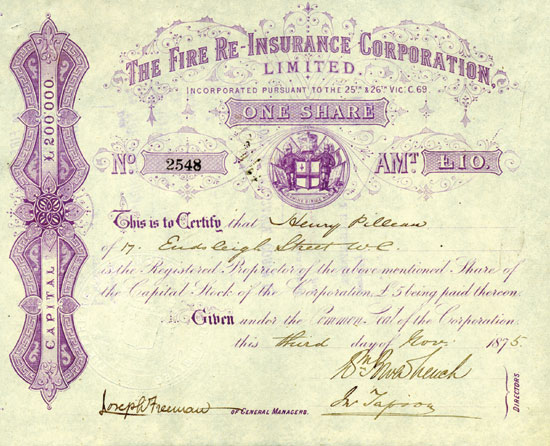 THE FIRE RE-INSURANCE CORPORATION,
LIMITED.
INCORPORATED PURSUANT TO THE 25TH & 26TH VIC. C. 69.
ONE SHARE
No. 2548 AMT £10.
This is to Certify that Henry Pilleau
of 17. Endsleigh Street W.C.
is the Registered Proprietor of the above mentioned Share of
the Capital Stock of the Corporation, £5 being paid thereon.
Given under the Common Seal of the Corporation.
this third day of Nov. 1875
Joseph Freeman
OF GENERAL MANAGERS.
DIRECTORS.
CAPITAL £200'000.